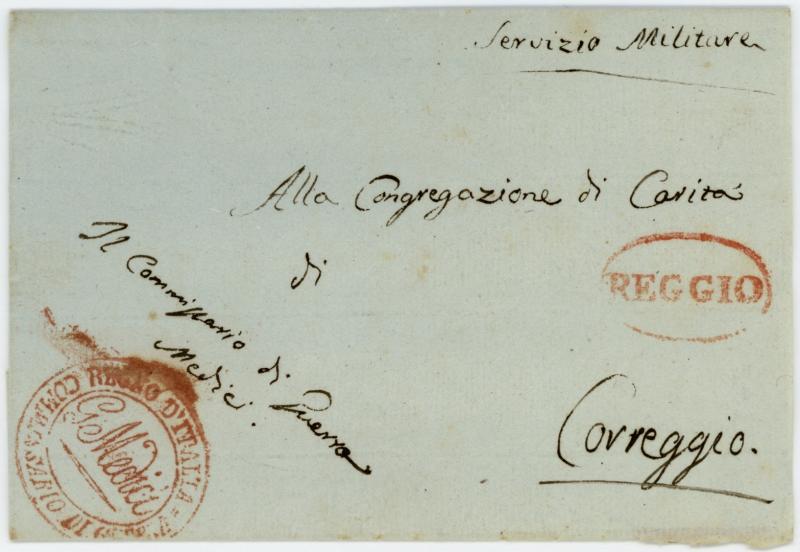 Servizio Militare
Alla Congregazione di Carità
di
Correggio.
Il Commissario di Guerra
Medici.
REGGIO
REGNO D'ITALIA
COMMISSARIO DI
G Medici